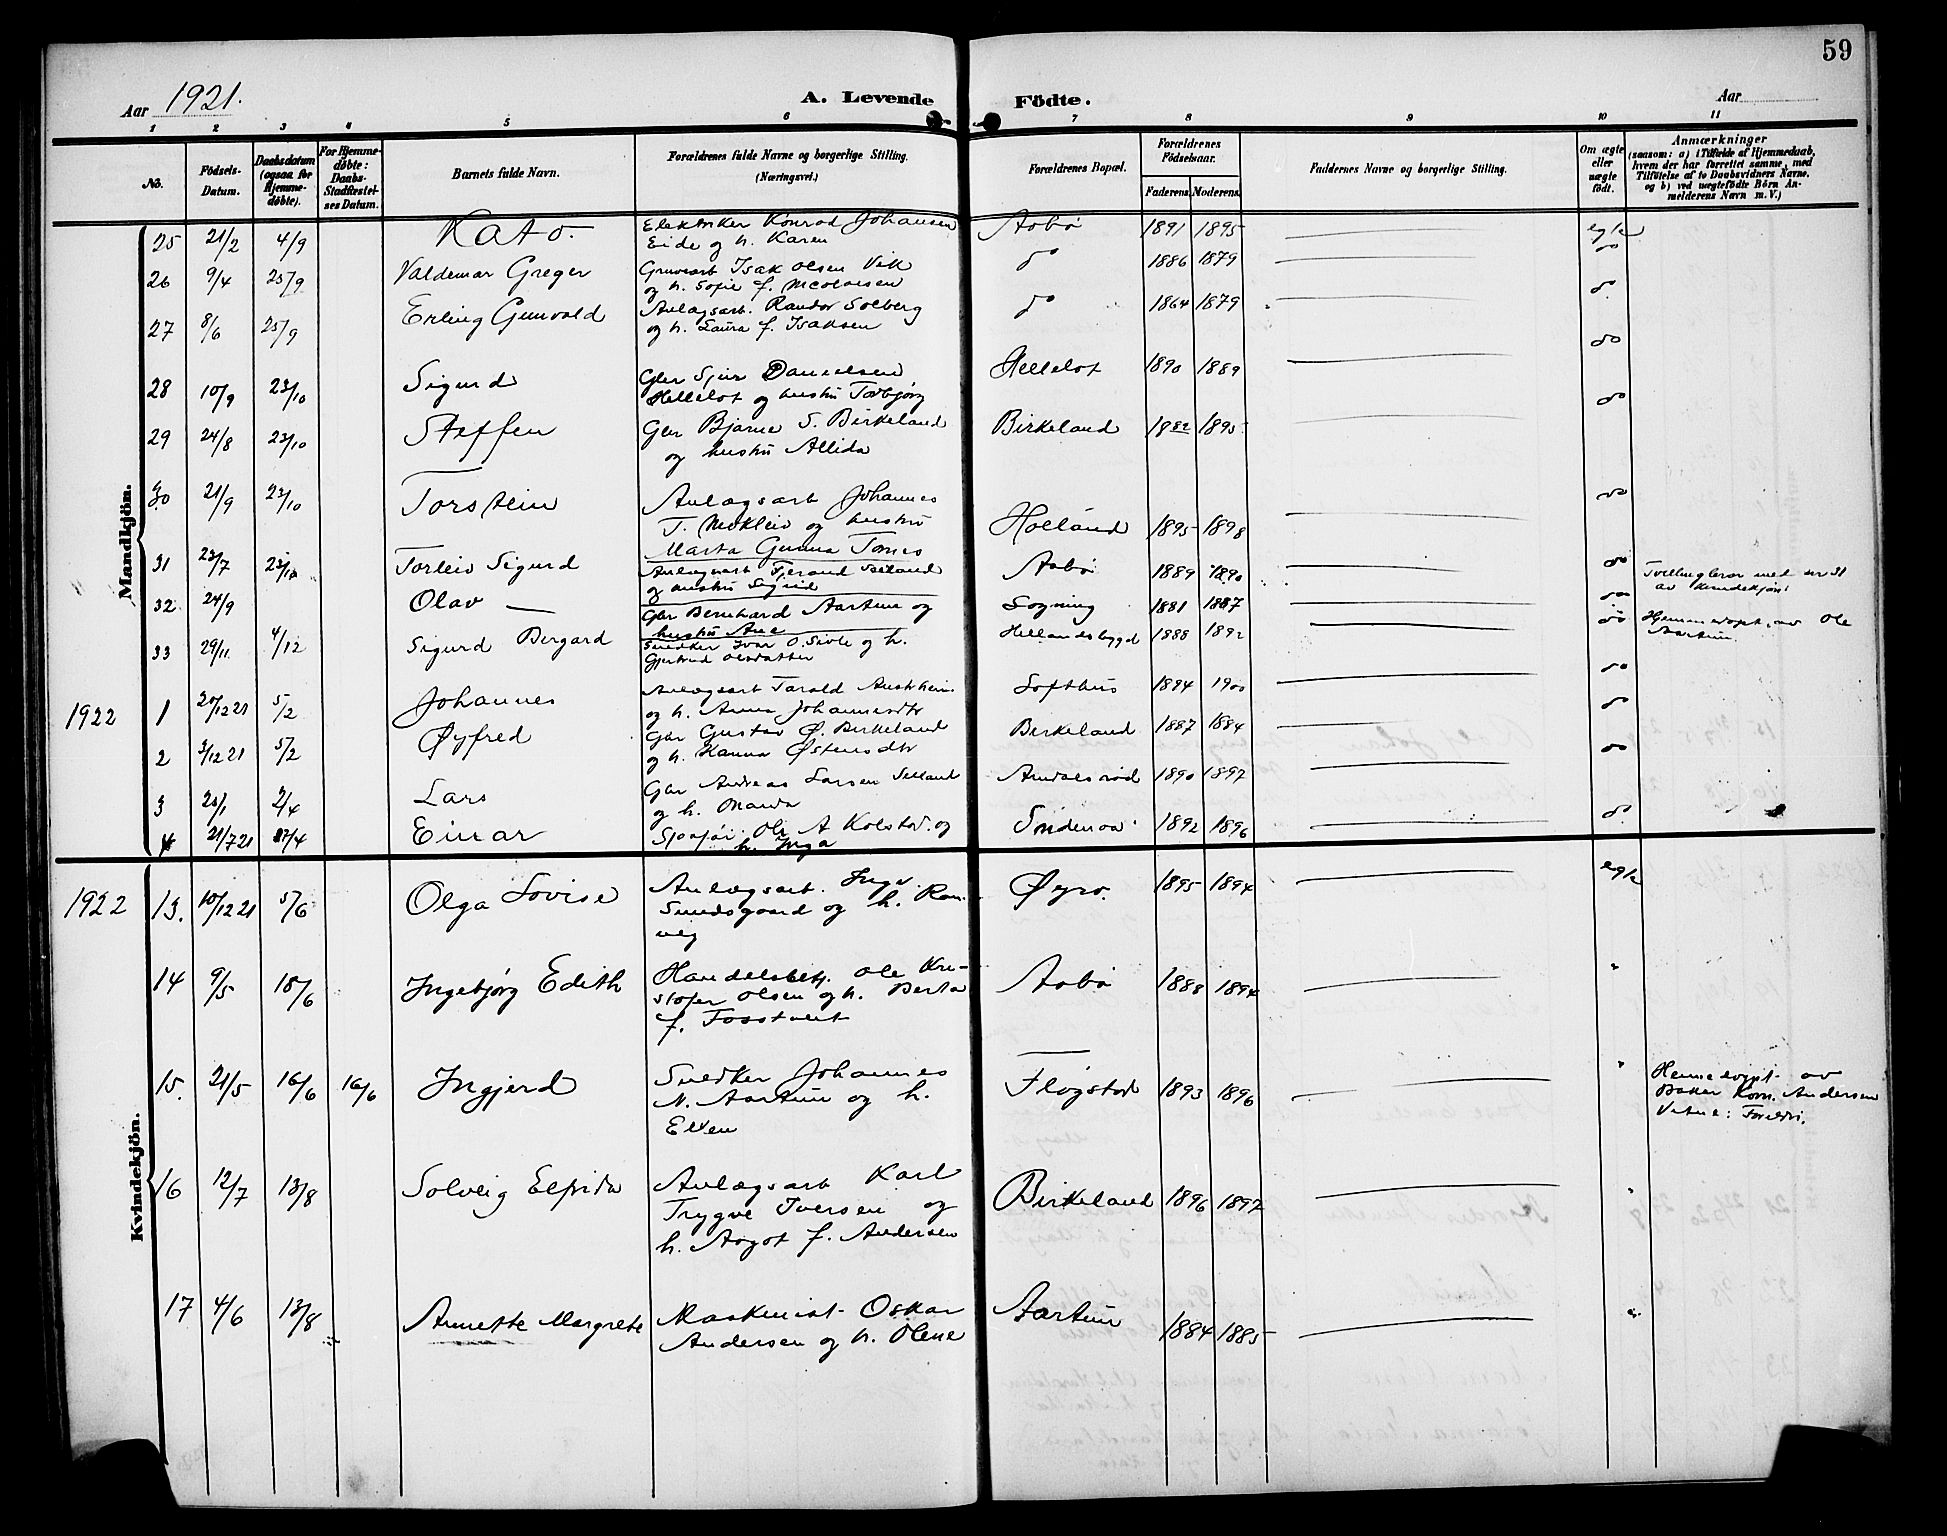 59
Aar 1921.
A. Levende Födte.
Aar
1 2 3 4 5 6 7 8 9 10 11
No.
Födsels-Datum.
Daabsdatum (ogsaa for Hjemme-döbte).
For Hjemme-döbte: Daabs-Stadfæstel-ses Datum.
Barnets fulde Navn.
Forældrenes fulde Navne og borgerlige Stilling. (Næringsvei.)
Forældrenes Bopæl.
Forældrenes Födselsaar.
Faderens. Moderens.
Faddernes Navne og borgerlige Stilling.
Om ægte eller uægte födt.
Anmærkninger
(saasom: a) i Tilfælde af Hjemmedaab, hvem der har forrettet samme, med Tilföielse af to Daabsvidners Navne, og b) ved uægtefödte Börn An-melderens Navn m. V.)
Mandkjön.
25 21/2 4/9 Kato. Elektriker Konrad Johansen Aabö 1891 1895 egte
Eide og h. Karen
26 9/4 25/9 Valdemar Greger Gruvearb Isak Olsen Vik do 1886 1879 do
og h. Sofie f. Nicolaisen
27 8/6 25/9 Erling Gunvald Anlægsarb. Randor Solberg do 1864 1879 do
og h. Laura f. Isaksen
28 10/9 23/10 Sigurd Gbr Danielsen Hellelot 1890 1889 do
Hellelot og hustru Torbjørg
29 24/8 23/10 Steffen Gbr Bjarne S. Birkeland Birkeland 1882 1895 do
og hustru Allida
30 21/9 23/10 Torstein Anlægsarb Johannes do
T. Mokleiv og hustru Holland 1895 1898
Marta Gunna Tornes
31 23/7 23/10 Torleiv Sigurd Anlægsarb Aabö 1889 1890 do Tvillingbror med nr 31
og hustru Sigrid av kvindekjön.
32 24/9 Olav Gbr Bernhard Aartun og Sogning 1881 1887 do
hustru Ane
33 29/11 4/12 Sigurd Bergard Snedker Ivar O. Sivle og h. Hellandsbygd 1888 1892 do Hjemmedöpt av Ole Aartun.
Gjertrud Olsdatter
1922 1 20/12 21 5/2 Johannes Anlægsarb Tarald Austrheim Lofthus 1894 1900 do
og h. Anna Johannesdtr
2 3/12 21 5/2 Øyfred Gbr Gustav Ø. Birkeland Birkeland 1887 1884 do
og h. Hanna Østensdtr
3 2/4 Lars Gbr Andreas Larsen Selland 1890 1897 do
og h. Marta
4 21/7 21 17/4 Einar Sjaafør Ole A Kolstad og Søndenaa 1892 1896 do
h. Inga
Kvindekjön.
1922 13. 10/12 21 5/6 Olga Lovise Anlægsarb. Øyro. 1895 1894 egte
Sundsgaard og h. Ran-
veig
14 9/5 18/6 Ingebjørg Edith Handelsbetj. Ole Kri- Aabö 1888 1894 "
stofer Olsen og h. Berta
f. Fosstveit
15. 21/5 16/6 16/6 Ingjerd Snedker Johannes Fløgstad 1893 1896 " Hjemmedøpt av
N. Aartun og h. Baker Korn. Andersen
Ellen Vitne: Foreldr.
16 12/7 13/8 Solveig Elfrida Anlægsarb Karl Birkeland 1896 1897 "
Trygve Iversen og
h. Aagot f. Andersen
17 4/6 13/8 Annette Margrete Maskinist Oskar Aartun 1884 1885 "
Andersen og h. Olene